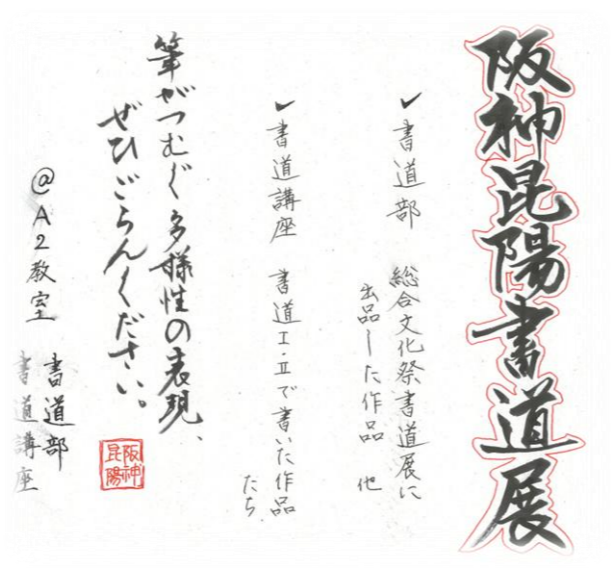 阪神昆陽書道展
✓書道部 総合文化祭書道展に
出品した作品 他
✓書道講座 書道I・IIで書いた作品
たち
筆がつむぐ多様性の表現、
ぜひごらんください。
@A2教室 書道部
書道講座
阪神
昆陽